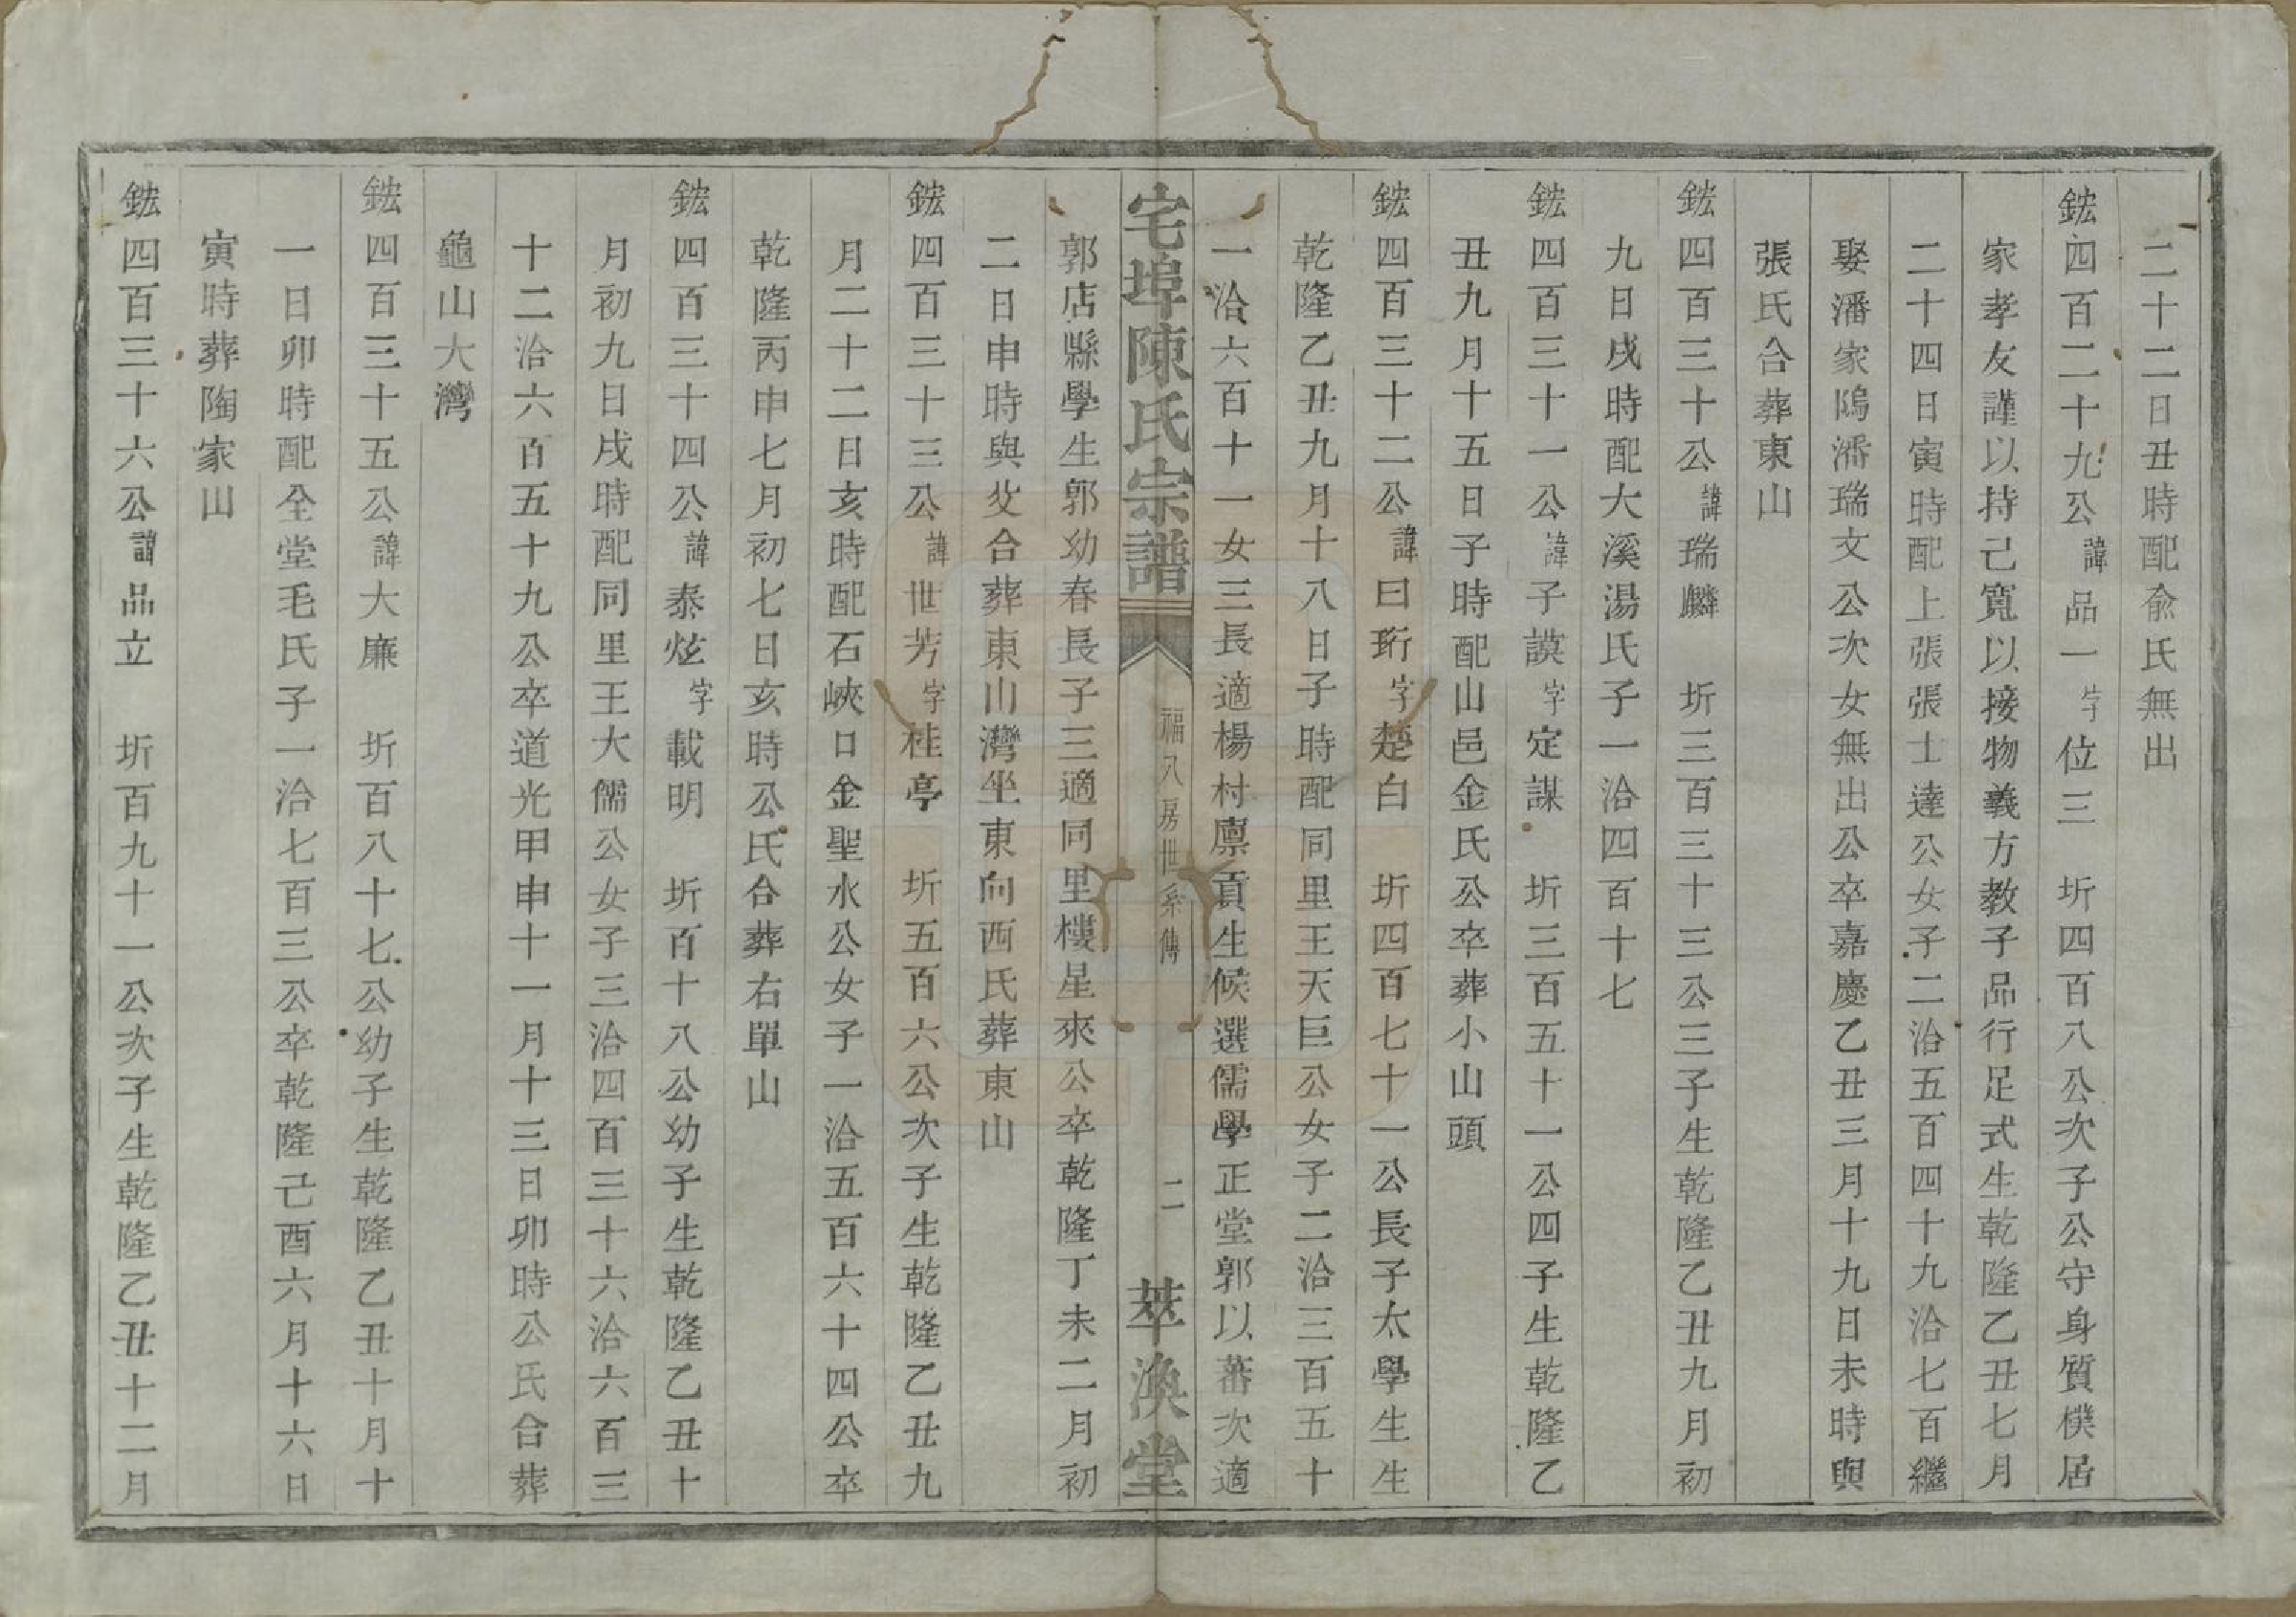 二十二日丑時配俞氏無出
鋐四百二十九公諱品一字位三　圻四百八公次子公守身質樸居
家孝友謹以持己寬以接物義方教子品行足式生乾隆乙丑七月
二十四日寅時配上張張士達公女子二洽五百四十九洽七百繼
娶潘家隝潘瑞文公次女無出公卒嘉慶乙丑三月十九日未時與
張氏合葬東山
鋐四百三十公諱瑞麟　圻三百三十三公三子生乾隆乙丑九月初
九日戌時配大溪湯氏子一洽四百十七
鋐四百三十一公諱子謨字定謀　圻三百五十一公四子生乾隆乙
丑九月十五日子時配山邑金氏公卒葬小山頭
鋐四百三十二公諱曰珩字楚白　圻四百七十一公長子太學生生
乾隆乙丑九月十八日子時配同里王天巨公女子二洽三百五十
一洽六百十一女三長適楊村廪貢生候選儒學正堂郭以蕃次適
宅埠陳氏宗譜　福八房世系傳　二　萃渙堂
郭店縣學生郭幼春長子三適同里樓星來公卒乾隆丁未二月初
二日申時與父合葬東山灣坐東向西氏葬東山
鋐四百三十三公諱世芳字桂亭　圻五百六公次子生乾隆乙丑九
月二十二日亥時配石峽口金聖水公女子一洽五百六十四公卒
乾隆丙申七月初七日亥時公氏合葬右單山
鋐四百三十四公諱泰炫字載明　圻百十八公幼子生乾隆乙丑十
月初九日戌時配同里王大儒公女子三洽四百三十六洽六百三
十二洽六百五十九公卒道光甲申十一月十三日卯時公氏合葬
龜山大灣
鋐四百三十五公諱大廉　圻百八十七公幼子生乾隆乙丑十月十
一日卯時配全堂毛氏子一洽七百三公卒乾隆己酉六月十六日
寅時葬陶家山
鋐四百三十六公諱品立　圻百九十一公次子生乾隆乙丑十二月